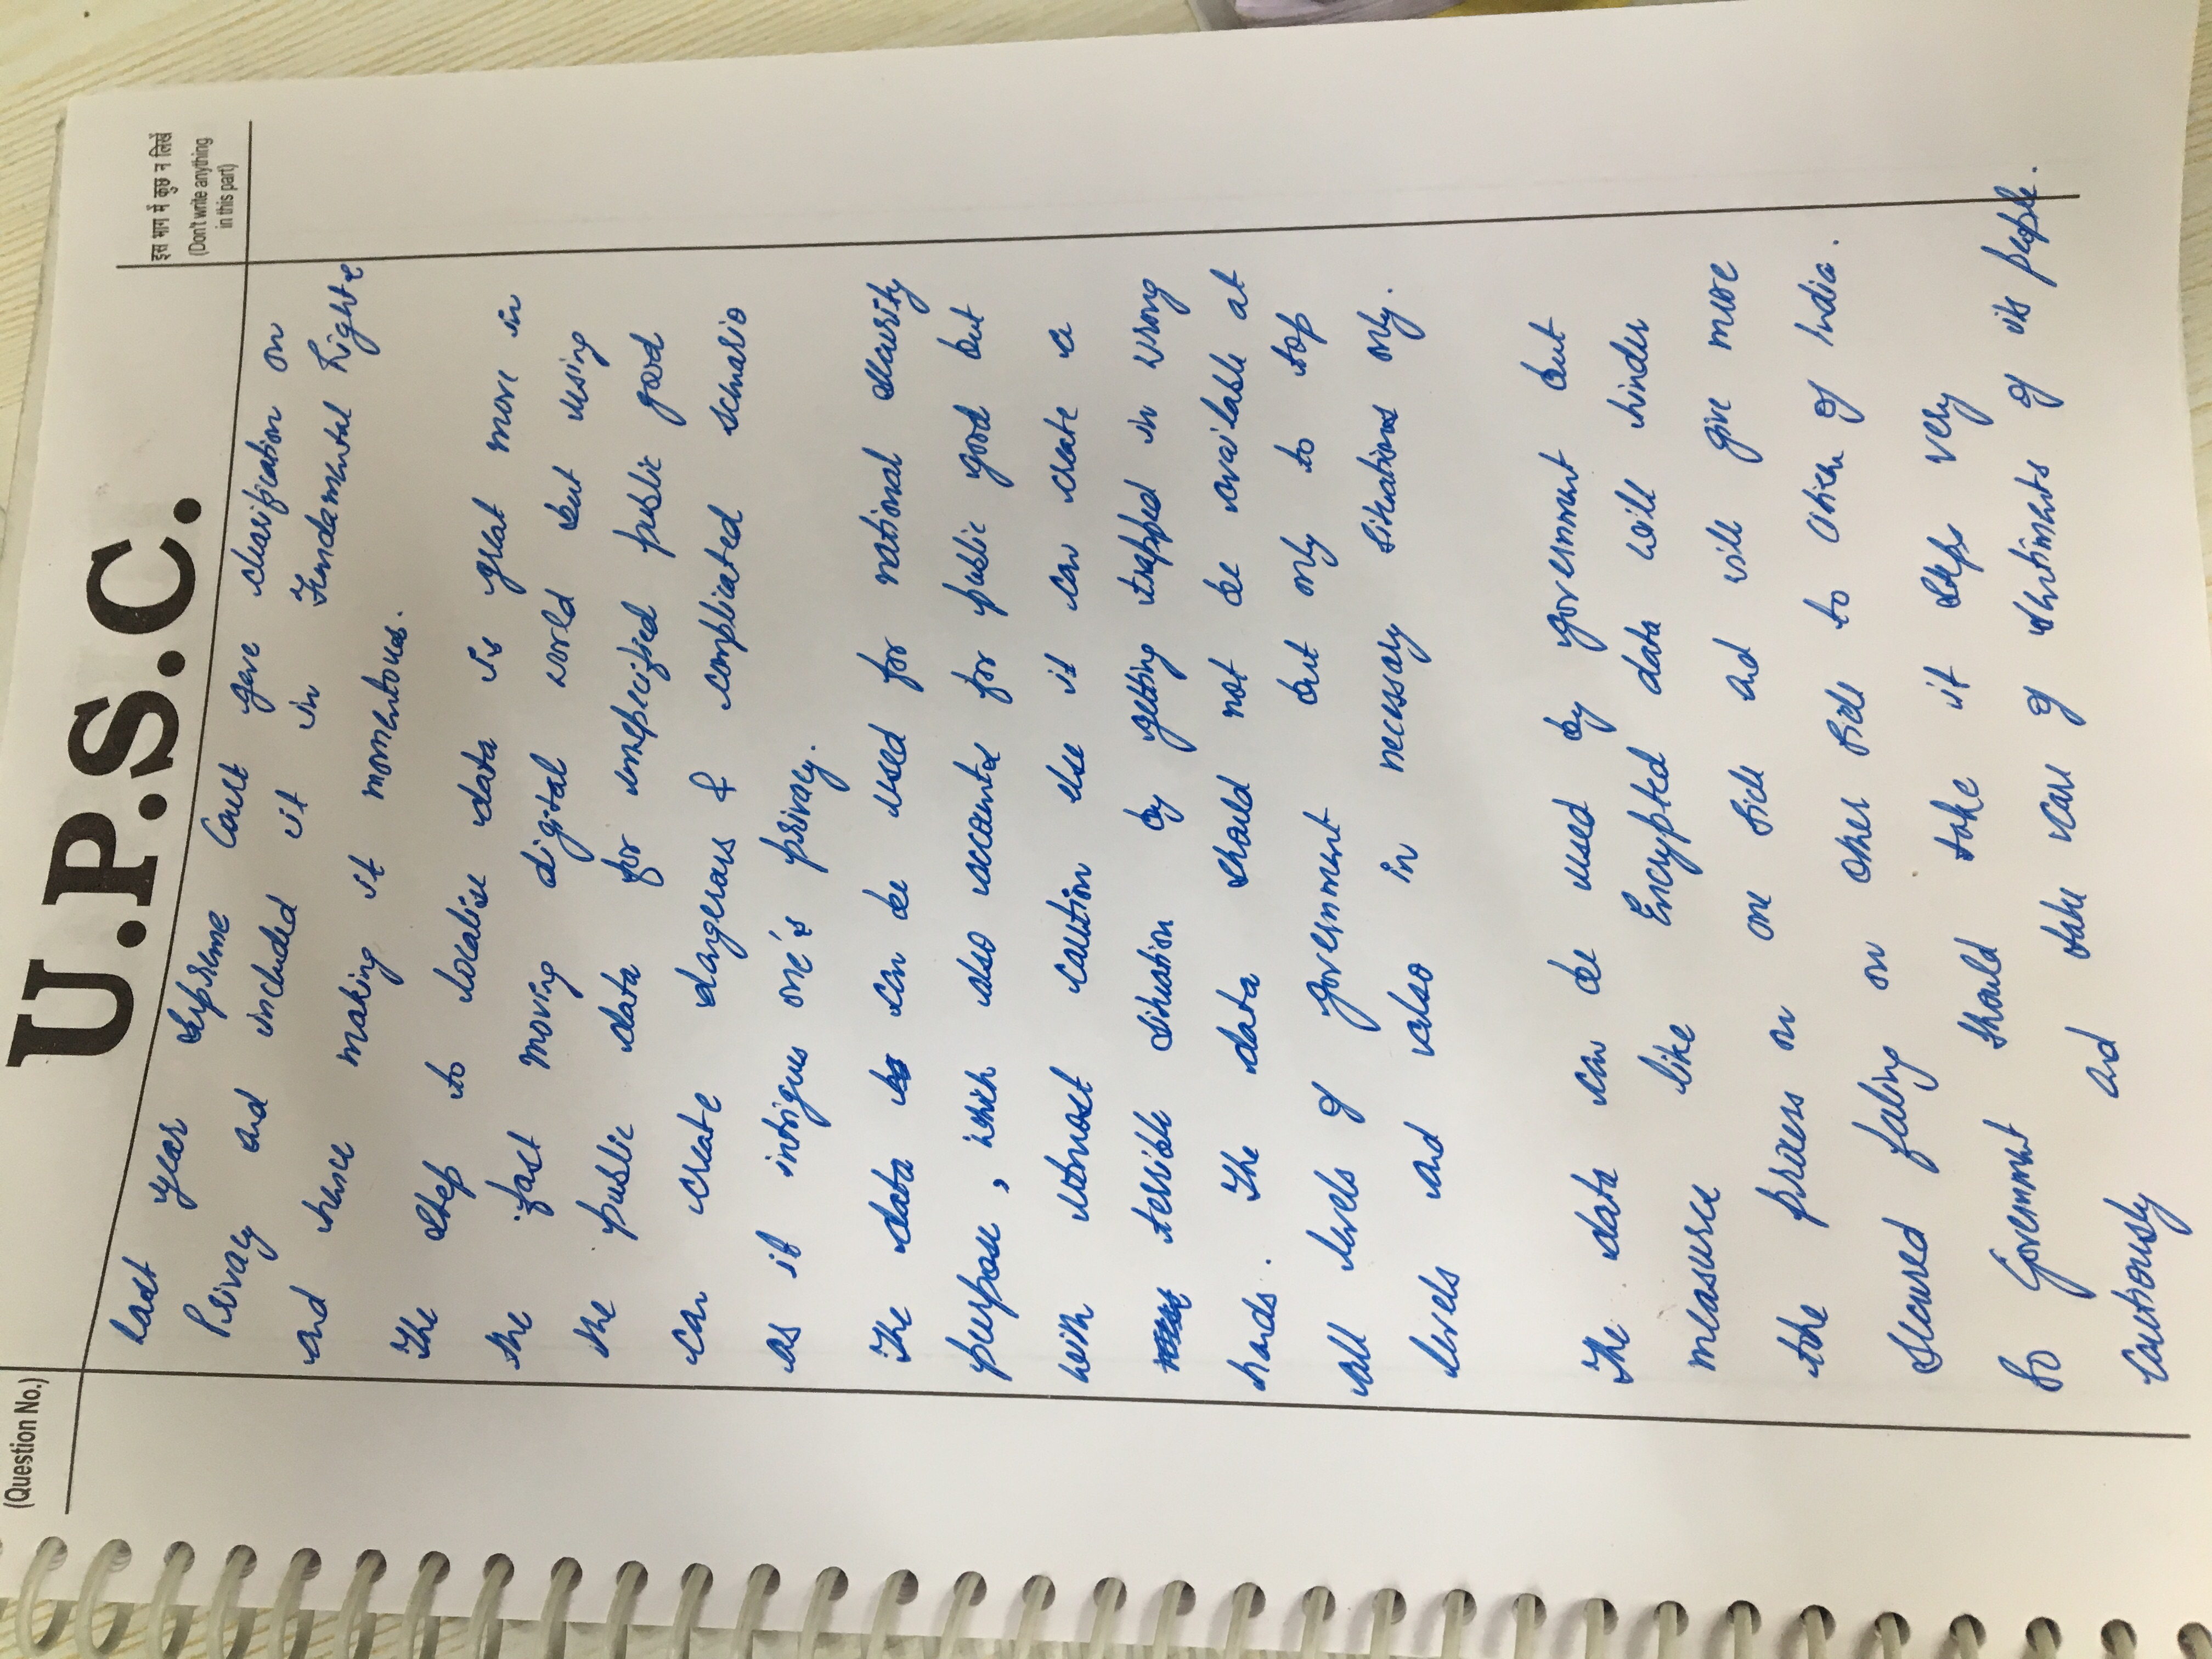 U.P.S.C.
(Question No.)
इस भाग में कुछ न लिखें
(Don't write anything
in this part)
Last year Supreme Court gave clarification on
Privacy and included it in Fundamental Rights
and hence making it momentous.
The step to localise data is great move in
the fast moving digital world but using
the public data for unspecified public good
can create dangerous & complicated scenario
as it intrigues one's privacy.
The data can be used for national security
purpose, which also accounts for public good but
with utmost caution else it can create a
terrible situation by getting trapped in wrong
hands. The data should not be available at
all levels of government but only to top
levels and also in necessary situations only.
The data can be used by government but
measures like Encrypted data will hinder
the process on one side and will give more
secured feeling on other side to citizen of India.
So Government should take it step very
cautiously and take care of sentiments of its people.